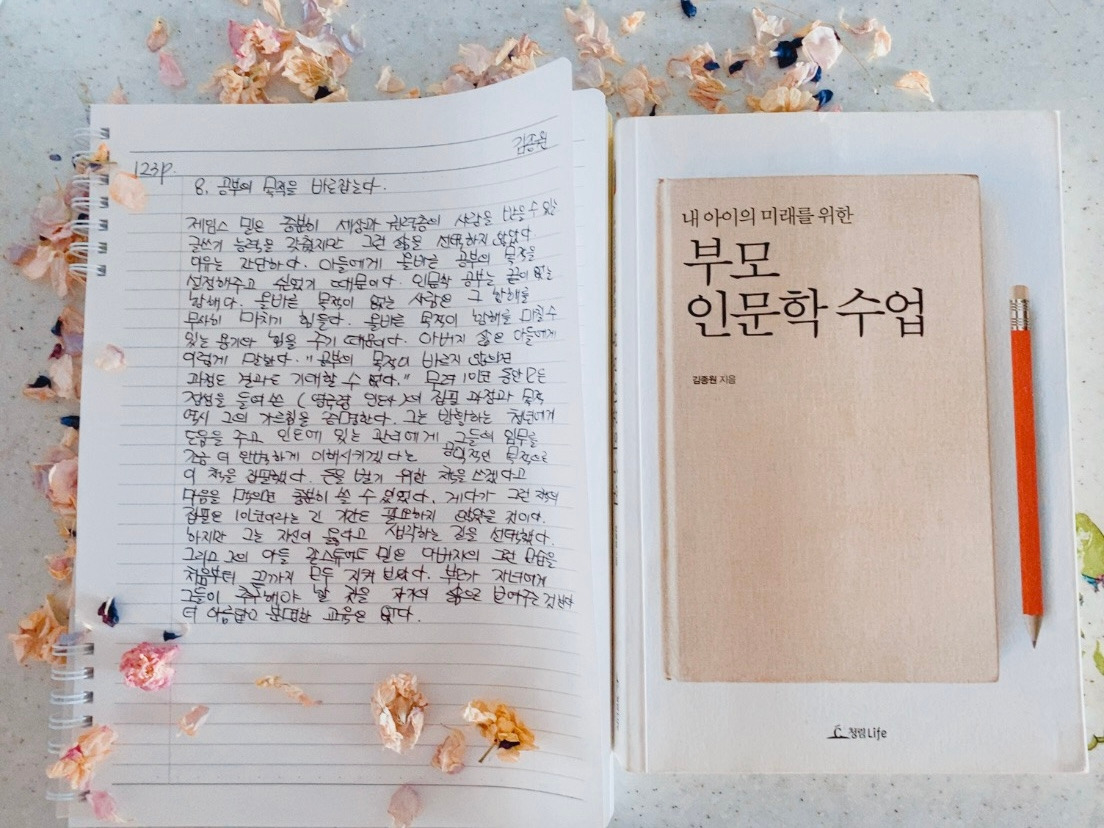 김종원
123p.
8. 공부의 목적을 바로잡는다.
제임스 밀은 충분히 세상과 권력층의 사랑을 받을 수 있는
글쓰기 능력을 갖췄지만 그런 삶을 선택하지 않았다
이유는 간단하다. 아들에게 올바른 공부의 목적을
설정해주고 싶었기 때문이다. 인문학 공부는 끝이 없는
항해다. 올바른 목적이 없는 사람은 그 항해를
무사히 마치기 힘들다. 올바른 목적이 항해를 마칠 수
있는 용기와 힘을 주기 때문이다. 아버지 밀은 아들에게
이렇게 말한다. "공부의 목적이 바르지 않으면
과정도 결과도 기대할 수 없다." 무려 10년 동안 모든
정성을 들여 쓴 《영국령 인도사》의 집필 과정과 목적
역시 그의 가르침을 증명한다. 그는 방황하는 청년에게
도움을 주고 인도에 있는 관료에게 그들의 임무를
조금 더 완벽하게 이해시키겠다는 공익적인 목적으로
이 책을 집필했다. 돈을 벌기 위한 책을 쓰겠다고
마음을 먹으면 충분히 쓸 수 있었다. 게다가 그런 책의
집필은 10년이라는 긴 기간도 필요하지 않았을 것이다.
하지만 그는 자신이 옳다고 생각하는 길을 선택했다.
그리고 그의 아들 존 스튜어트 밀은 아버지의 그런 모습을
처음부터 끝까지 모두 지켜 보았다. 부모가 자녀에게
그들이 추구해야 할 것을 자기의 삶으로 보여주는 것보다
더 아름답고 분명한 교육은 없다.
내 아이의 미래를 위한
부모
인문학 수업
김종원 지음
청림Life